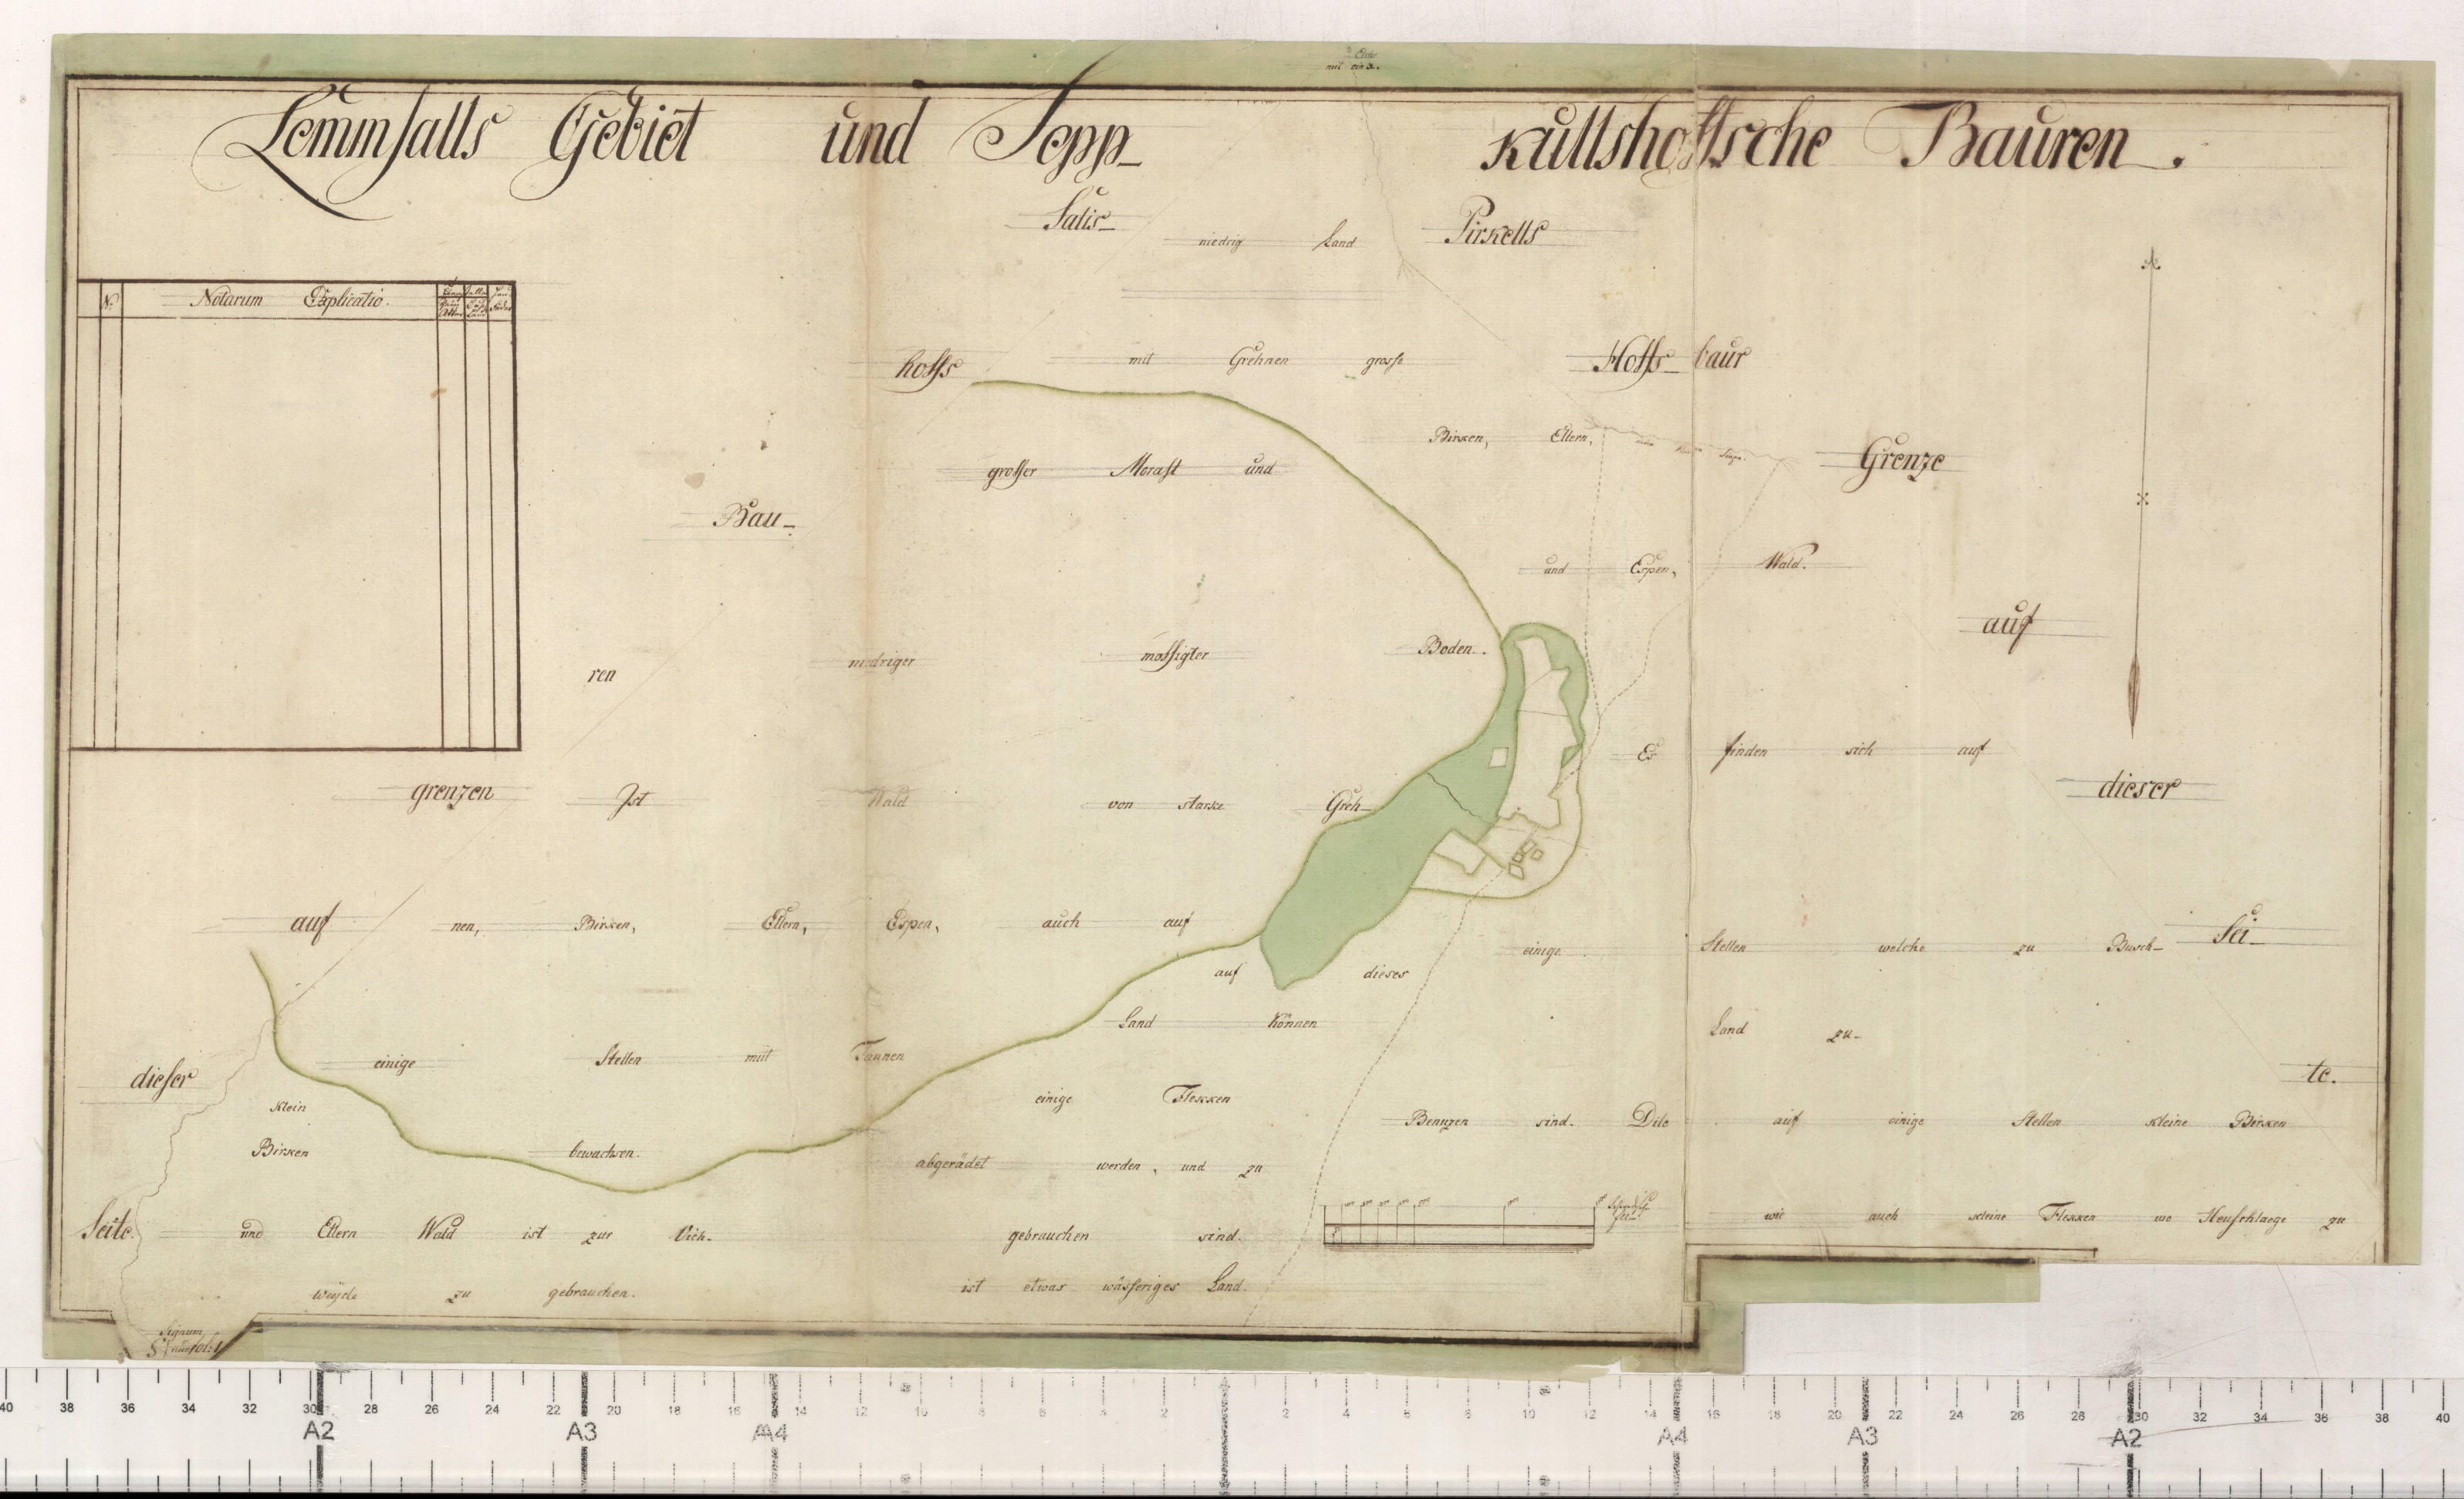 mit ein
Lemmsalls Gebiet und Sepp-
kullshoffsche Bauren.
Salis- niedrig Land Pirkells
No Notarum Explicatio.
hoffs mit Grehnen grosse Hoffs- baur
Birken, Ellern, Grenze
grosser Morast und
Bau-
und Espen, Wald.
auf
ren niedriger mossigter Boden.
Es finden sich auf
dieser
grenzen Ist Wald von starke Greh-
auf nen, Birken, Ellern, Espen, auch auf
Sei-
auf dieses einige Stellen welche zu Busch-
Land Können Land zu-
dieser einige Stellen mit Tannen
te.
Klein einige Flekken
Benuzen sind. Die auf einige Stellen kleine Birken
Birken bewachsen.
abgerädet werden, und zu
Seite und Ellern Wald ist zur Vieh- gebrauchen sind.
wie auch kleine Flekken wo Heuschlaege zu
weyde zu gebrauchen. ist etwas wässeriges Land.
Signum
40 38 36 34 32 30 28 26 24 22 20 18 16 14 12 10 8 6 4 2 2 4 6 8 10 12 14 16 18 20 22 24 26 28 30 32 34 36 38 40
A2 A3 A4 A4 A3 A2